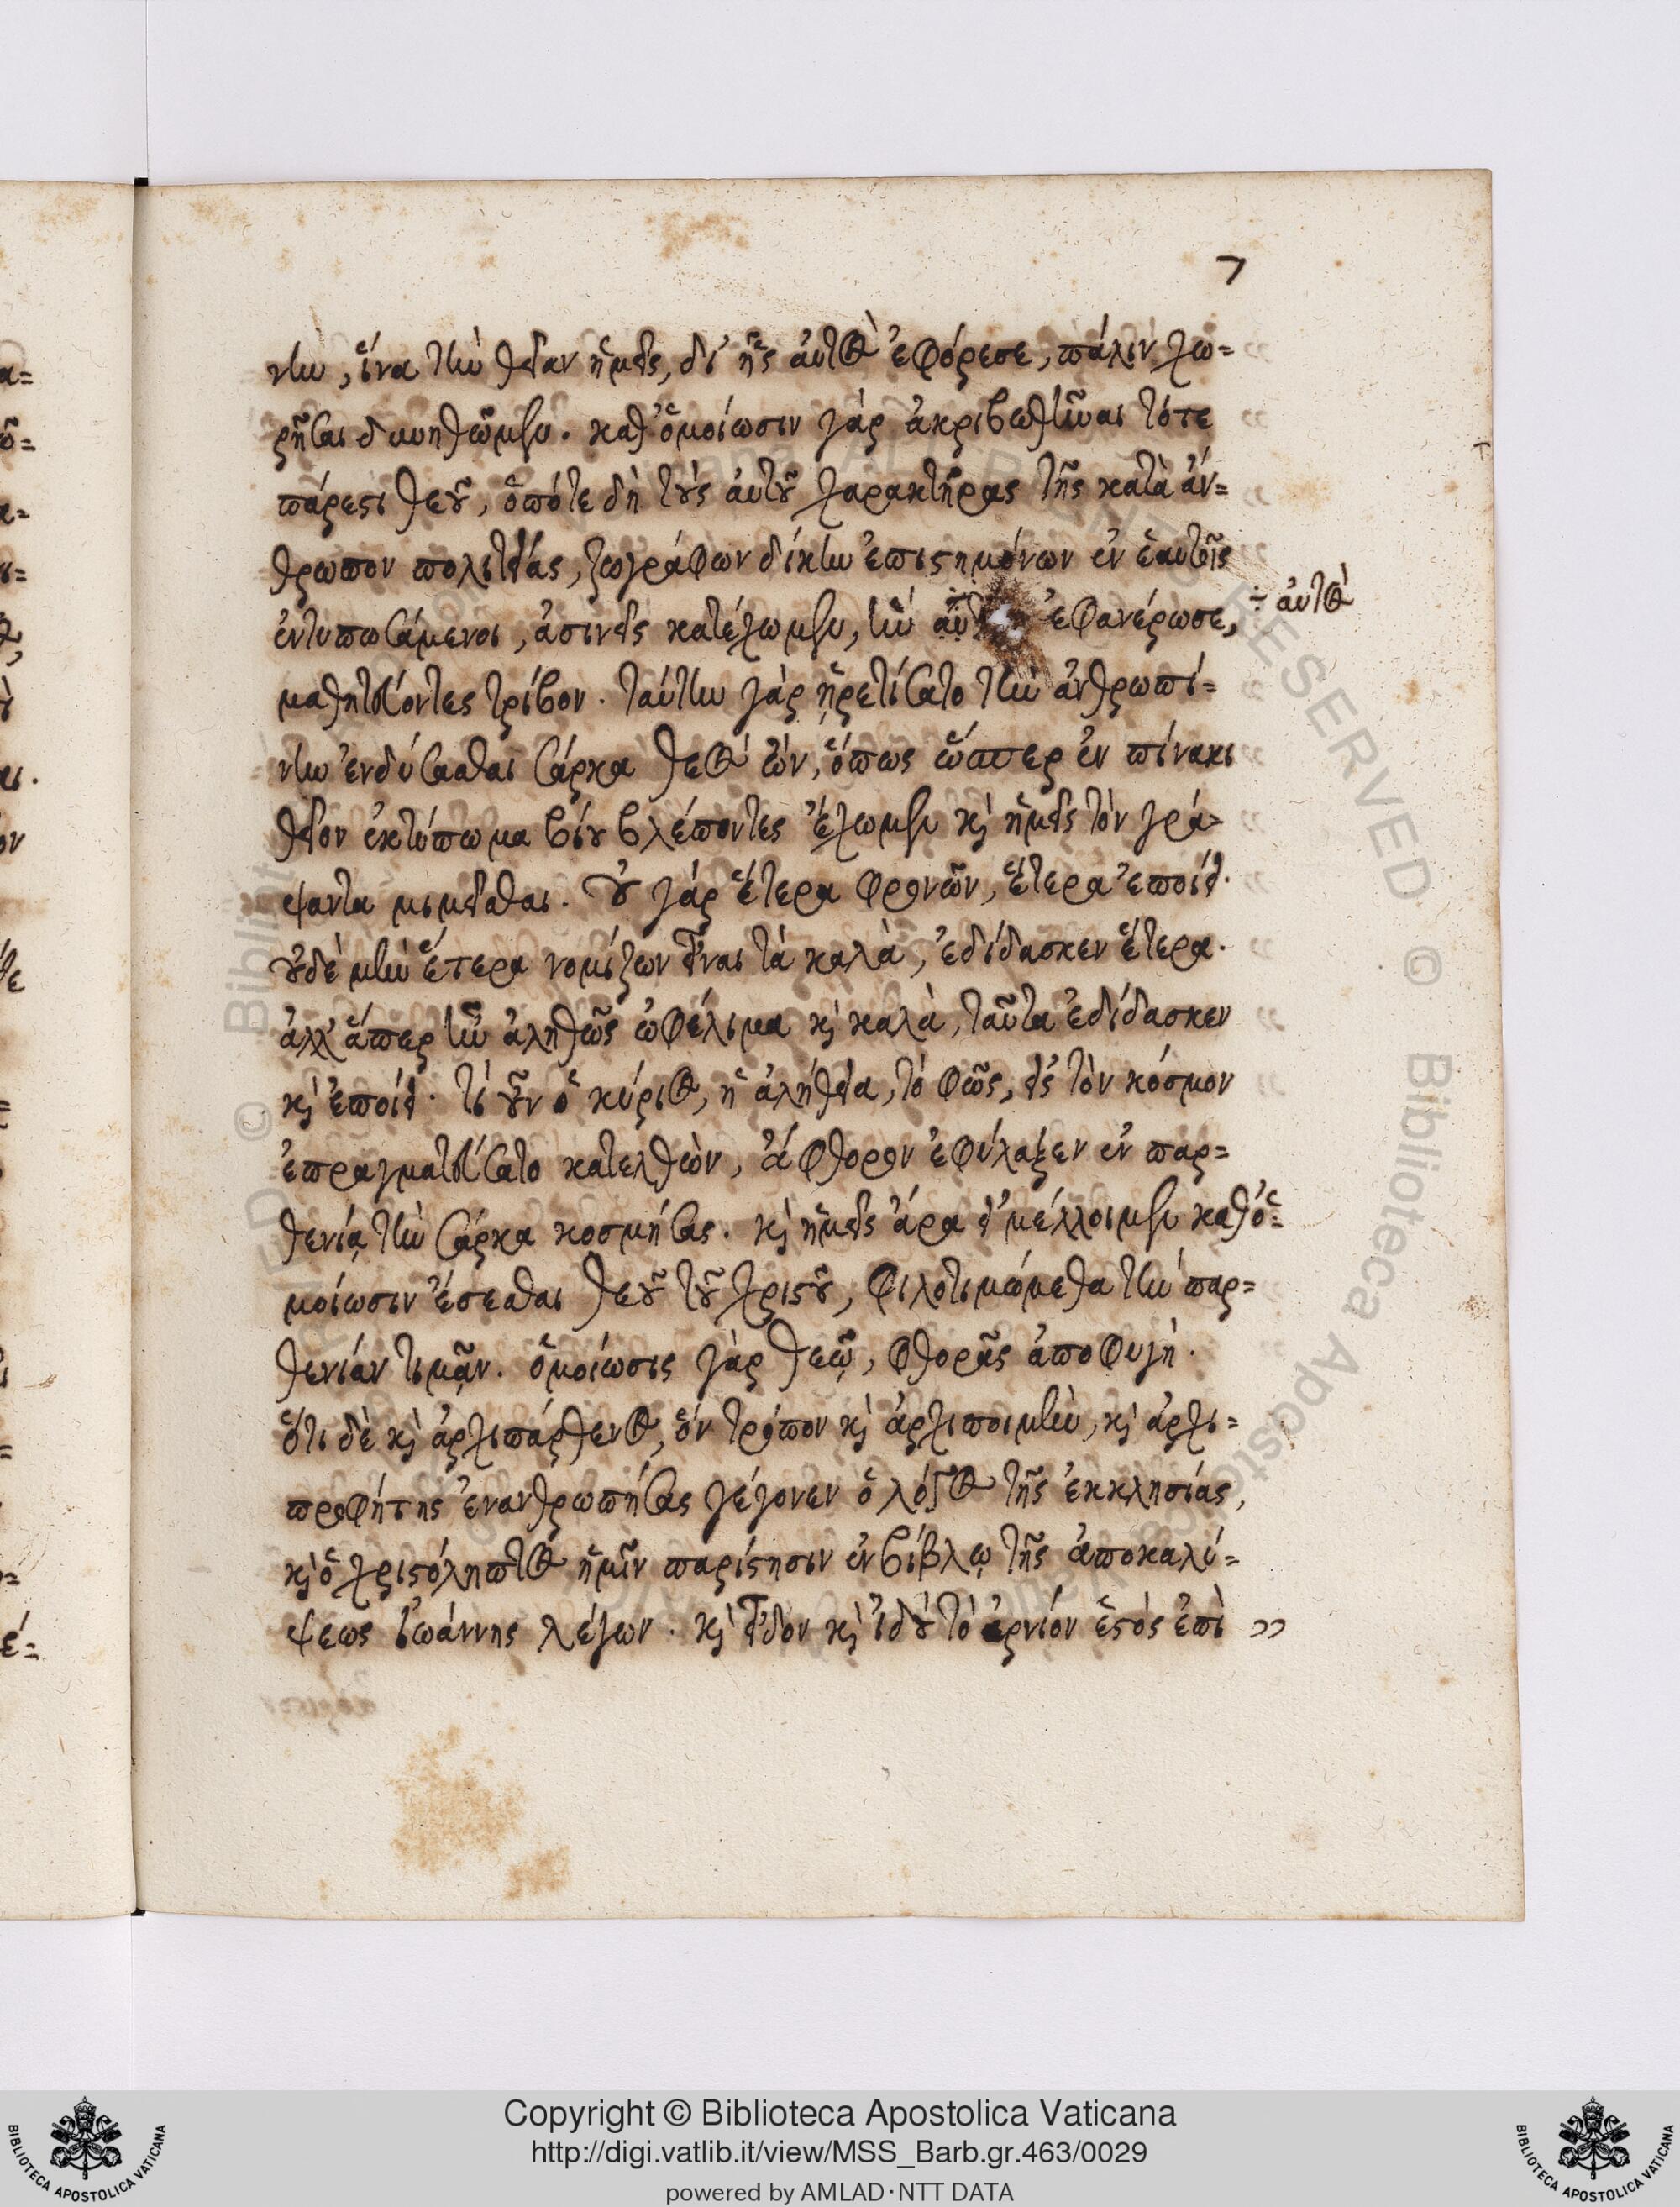 7
νην, ἵνα τὴν θείαν ἡμεῖς, δι' ἧς αὐτὸς ἐφόρεσε, πάλιν χω-
ρῆσαι δυνηθῶμεν. καθ' ὁμοίωσιν γὰρ ἀκριβωθῆναι τότε
πάρεστι θεοῦ, ὁπότε δὴ τοὺς αὐτοῦ χαρακτῆρας τῆς κατὰ ἄν-
θρωπον πολιτείας, ζωγράφων δίκην ἐπιστημόνων ἐν ἑαυτοῖς
ἐντυπωσάμενοι, ἀσινεῖς κατέχωμεν, ἣν ἐφανέρωσε,
÷ αὐτὸς
μαθητεύοντες τρίβον. ταύτην γὰρ ᾑρετίσατο τὴν ἀνθρωπί-
νην ἐνδύσασθαι σάρκα θεὸς ὤν, ὅπως ὥσπερ ἐν πίνακι
θεῖον ἐκτύπωμα βίου βλέποντες ἔχωμεν κὶ ἡμεῖς τὸν γρά-
ψαντα μιμεῖσθαι. οὐ γὰρ ἕτερα φρονῶν, ἕτερα ἐποίει.
οὐδὲ μὴν ἕτερα νομίζων εἶναι τὰ καλὰ, ἐδίδασκεν ἕτερα.
ἀλλ' ἅπερ ἦν ἀληθῶς ὠφέλιμα κὶ καλὰ, ταῦτα ἐδίδασκεν
κὶ ἐποίει. τί οὖν ὁ κύριος, ἡ ἀλήθεια, τὸ φῶς, εἰς τὸν κόσμον
ἐπραγματεύσατο κατελθὼν, ἄφθορον ἐφύλαξεν ἐν παρ-
θενίᾳ τὴν σάρκα κοσμήσας. κὶ ἡμεῖς ἄρα εἰ μέλλοιμεν καθ' ὁ-
μοίωσιν ἔσεσθαι θεοῦ τοῦ χριστοῦ, φιλοτιμώμεθα τὴν παρ-
θενίαν τιμᾷν. ὁμοίωσις γὰρ θεῷ, φθορᾶς ἀποφυγή.
ὅτι δὲ κὶ ἀρχιπάρθενος, ὃν τρόπον κὶ ἀρχιποιμὴν, κὶ ἀρχι-
προφήτης ἐνανθρωπήσας γέγονεν ὁ λόγος τῆς ἐκκλησίας,
κὶ ὁ χριστόληπτος ἡμῖν παρίστησιν ἐν βίβλῳ τῆς ἀποκαλύ-
ψεως ἰωάννης λέγων. κὶ εἶδον κὶ ἰδοὺ τὸ ἀρνίον ἑστὸς ἐπὶ
Copyright © Biblioteca Apostolica Vaticana
http://digi.vatlib.it/view/MSS_Barb.gr.463/0029
powered by AMLAD·NTT DATA